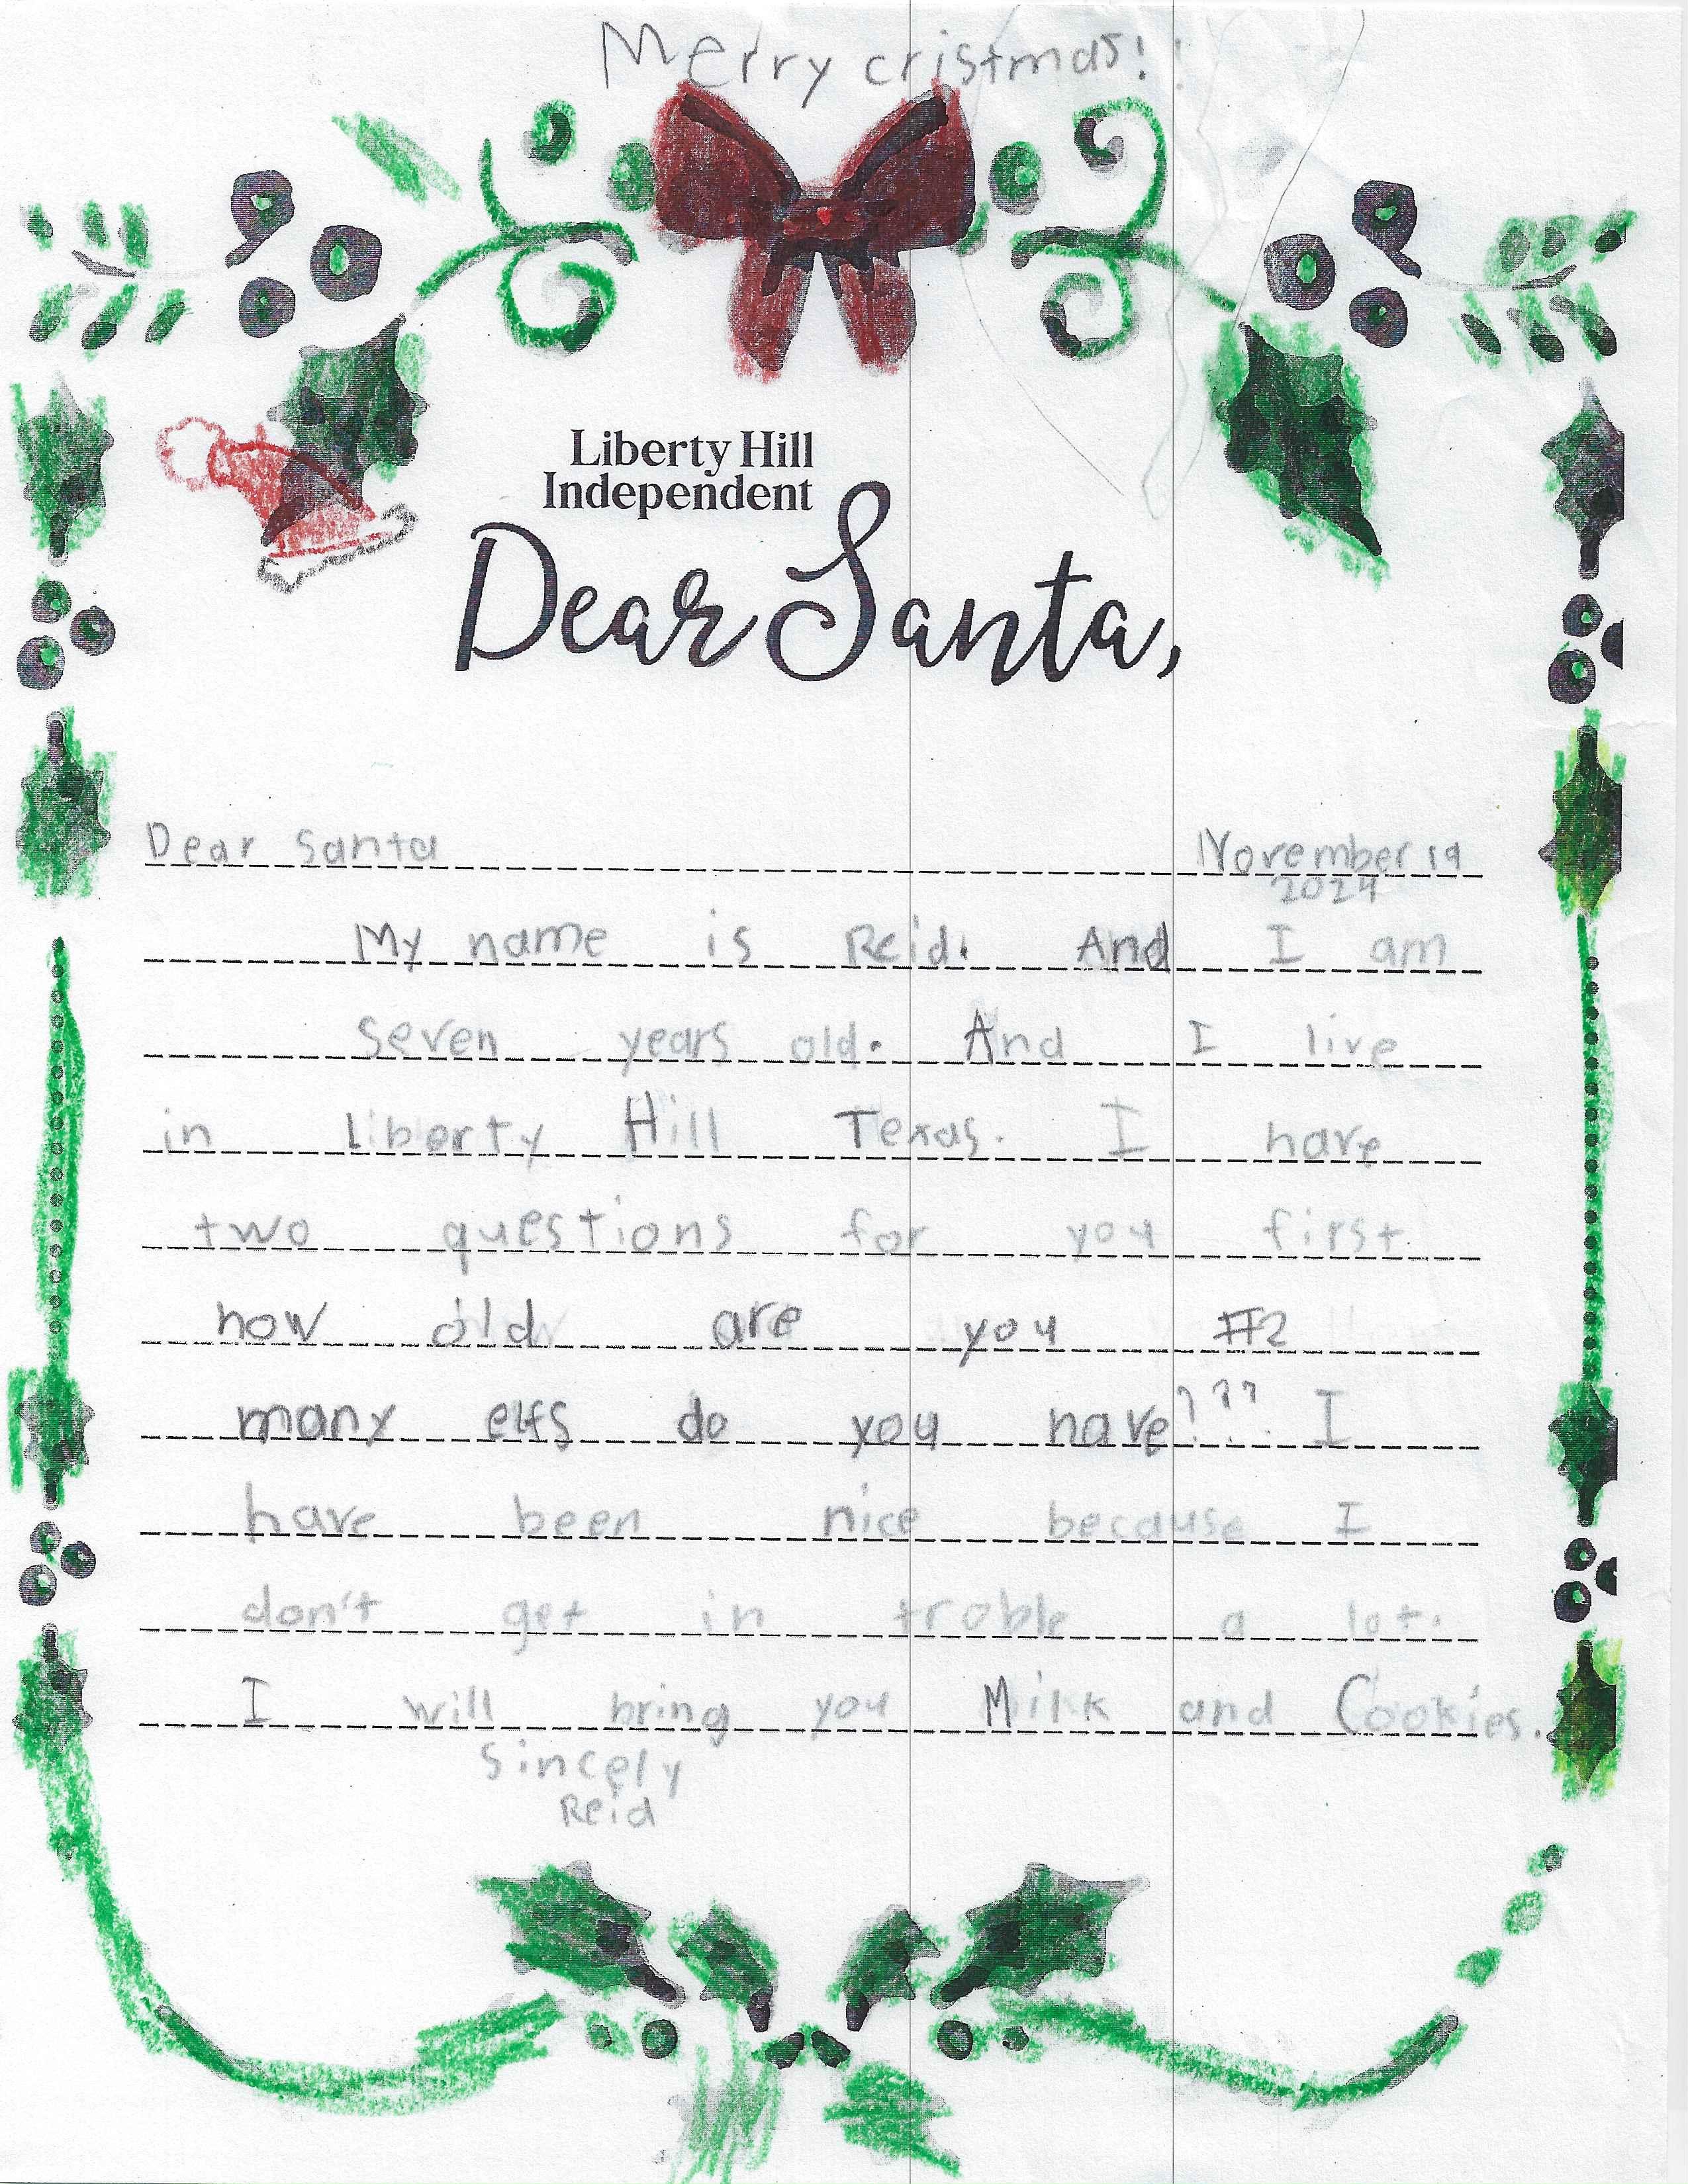 Merry cristmas!!
Liberty Hill
Independent
Dear Santa,
Dear Santa November 19
2024
My name is Reid. And I am
seven years old. And I live
in Liberty Hill Texas. I have
two questions for you first
how old are you #2
many elfs do you have??? I
have been nice because I
don't get in troble a lot.
I will bring you Milk and Cookies.
Sincely
Reid